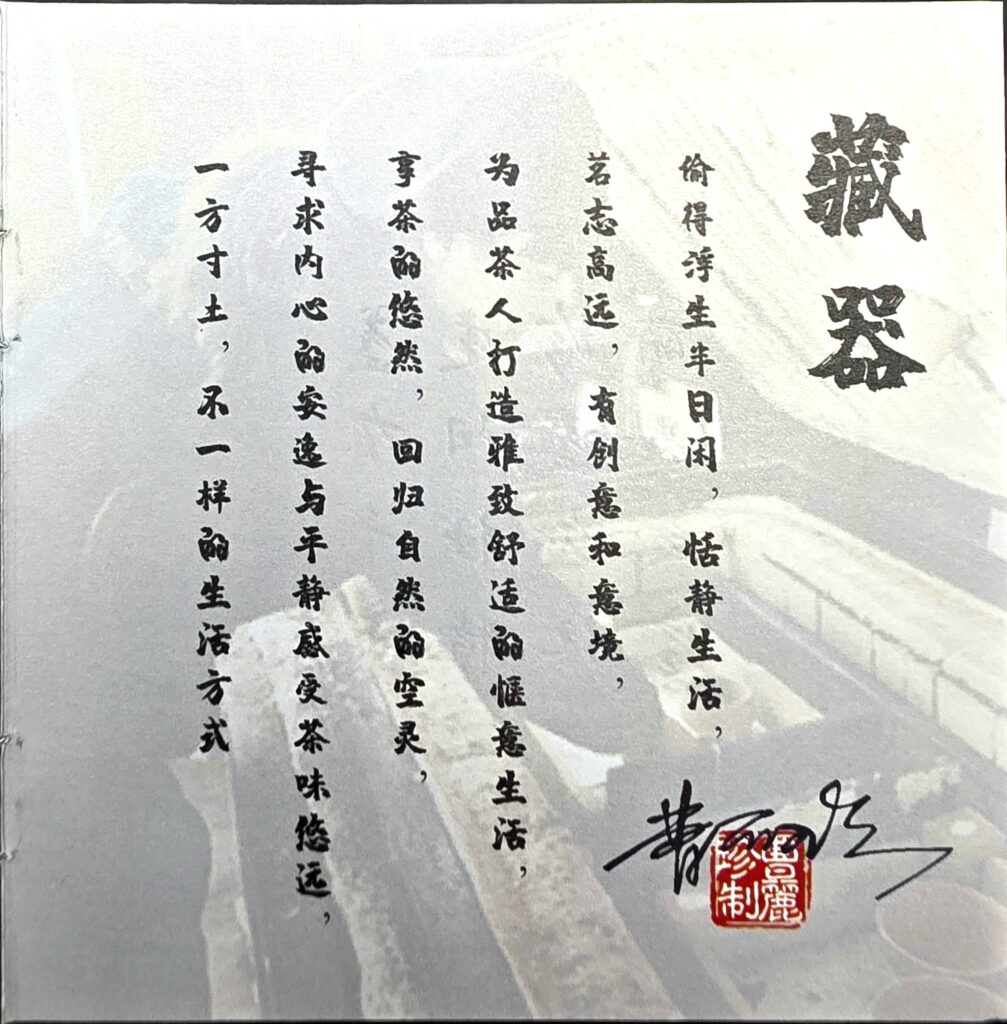 藏器
偷得浮生半日闲，恬静生活，
茗志高远，有创意和意境，
为品茶人打造雅致舒适的惬意生活，
享茶的悠然，回归自然的空灵，
寻求内心的安逸与平静感受茶味悠远，
一方寸土，不一样的生活方式
曹麗珍制